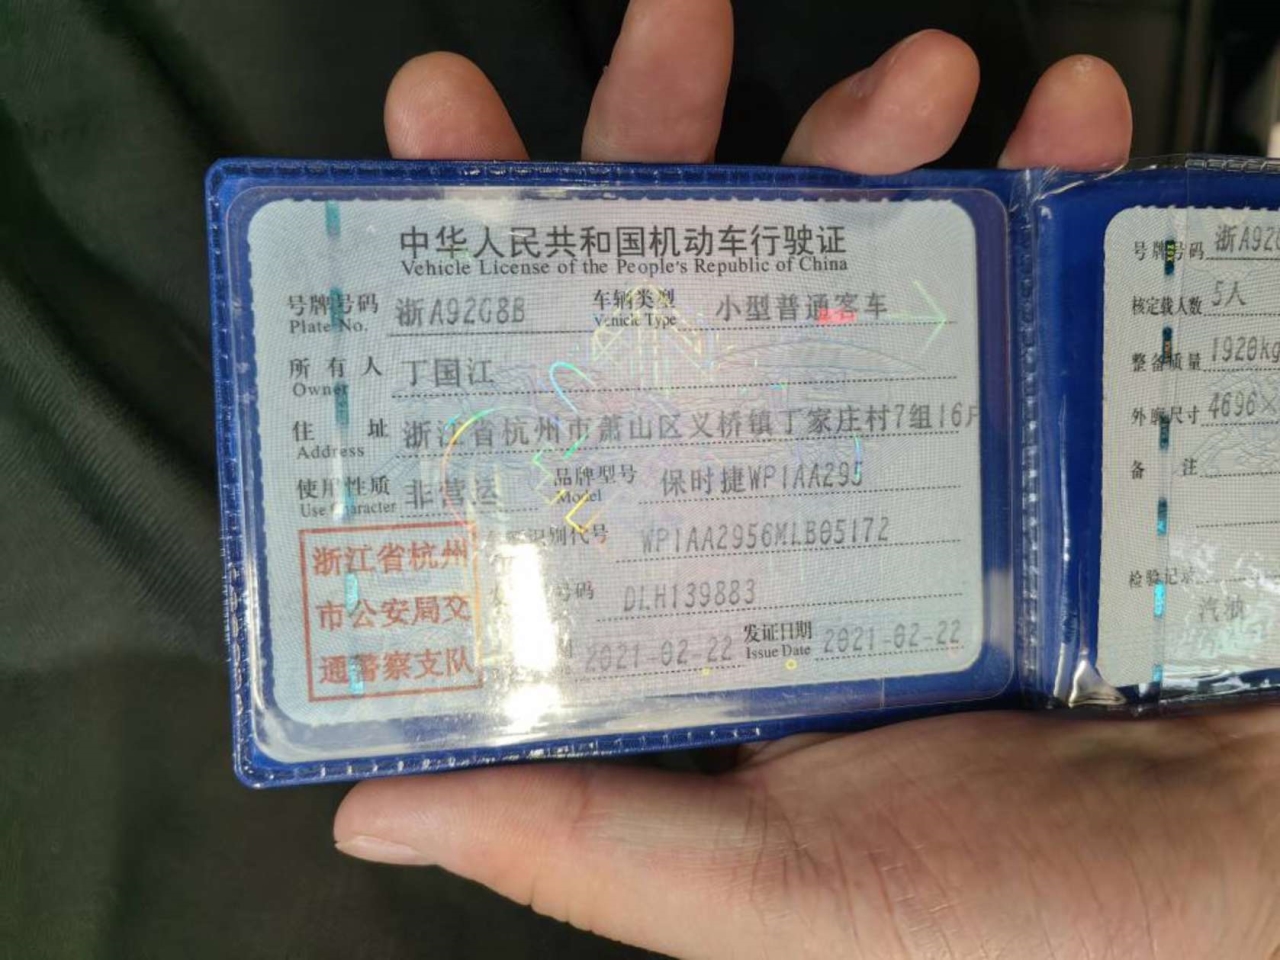 中华人民共和国机动车行驶证
Vehicle License of the People's Republic of China
号牌号码 浙A92G8B 车辆类型 小型普通客车
Plate No. Vehicle Type
所有人 丁国江
Owner
住址 浙江省杭州市萧山区义桥镇丁家庄村7组16户
Address
使用性质 非营运 品牌型号 保时捷WP1AA295
Use Character Model
识别代号 WP1AA2956MLB05172
号码 DLH139883
2021-02-22 发证日期 2021-02-22
Issue Date
浙江省杭州
市公安局交
通警察支队
号牌号码 浙A92
核定载人数 5人
整备质量 1920kg
外廓尺寸 4696×
备注
检验记录
汽油